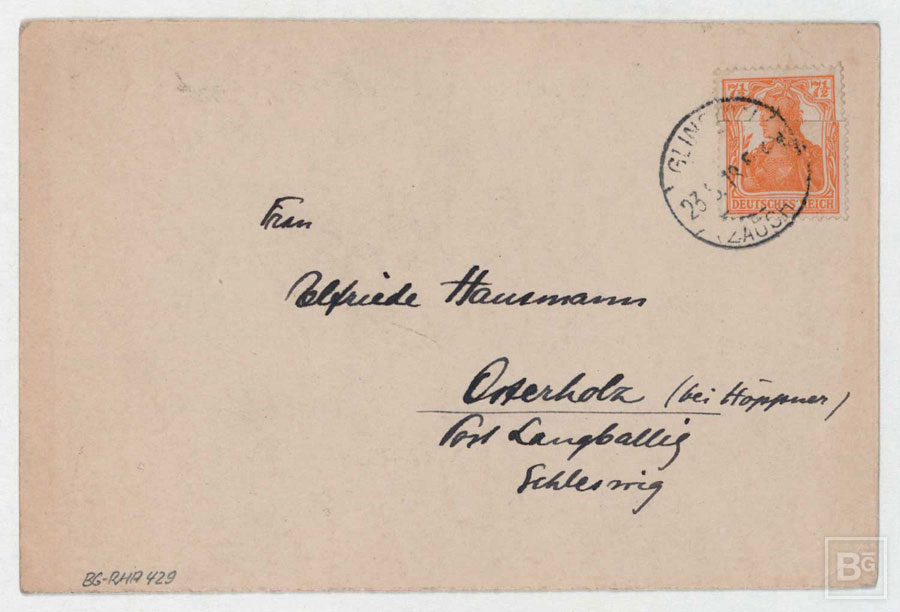 7½ 7½
DEUTSCHES REICH
23.5.18
ZAUCH
Frau
Elfriede Hausmann
Osterholz (bei Höppner)
Post Langballig
Schleswig
BG-RHA 429
BG